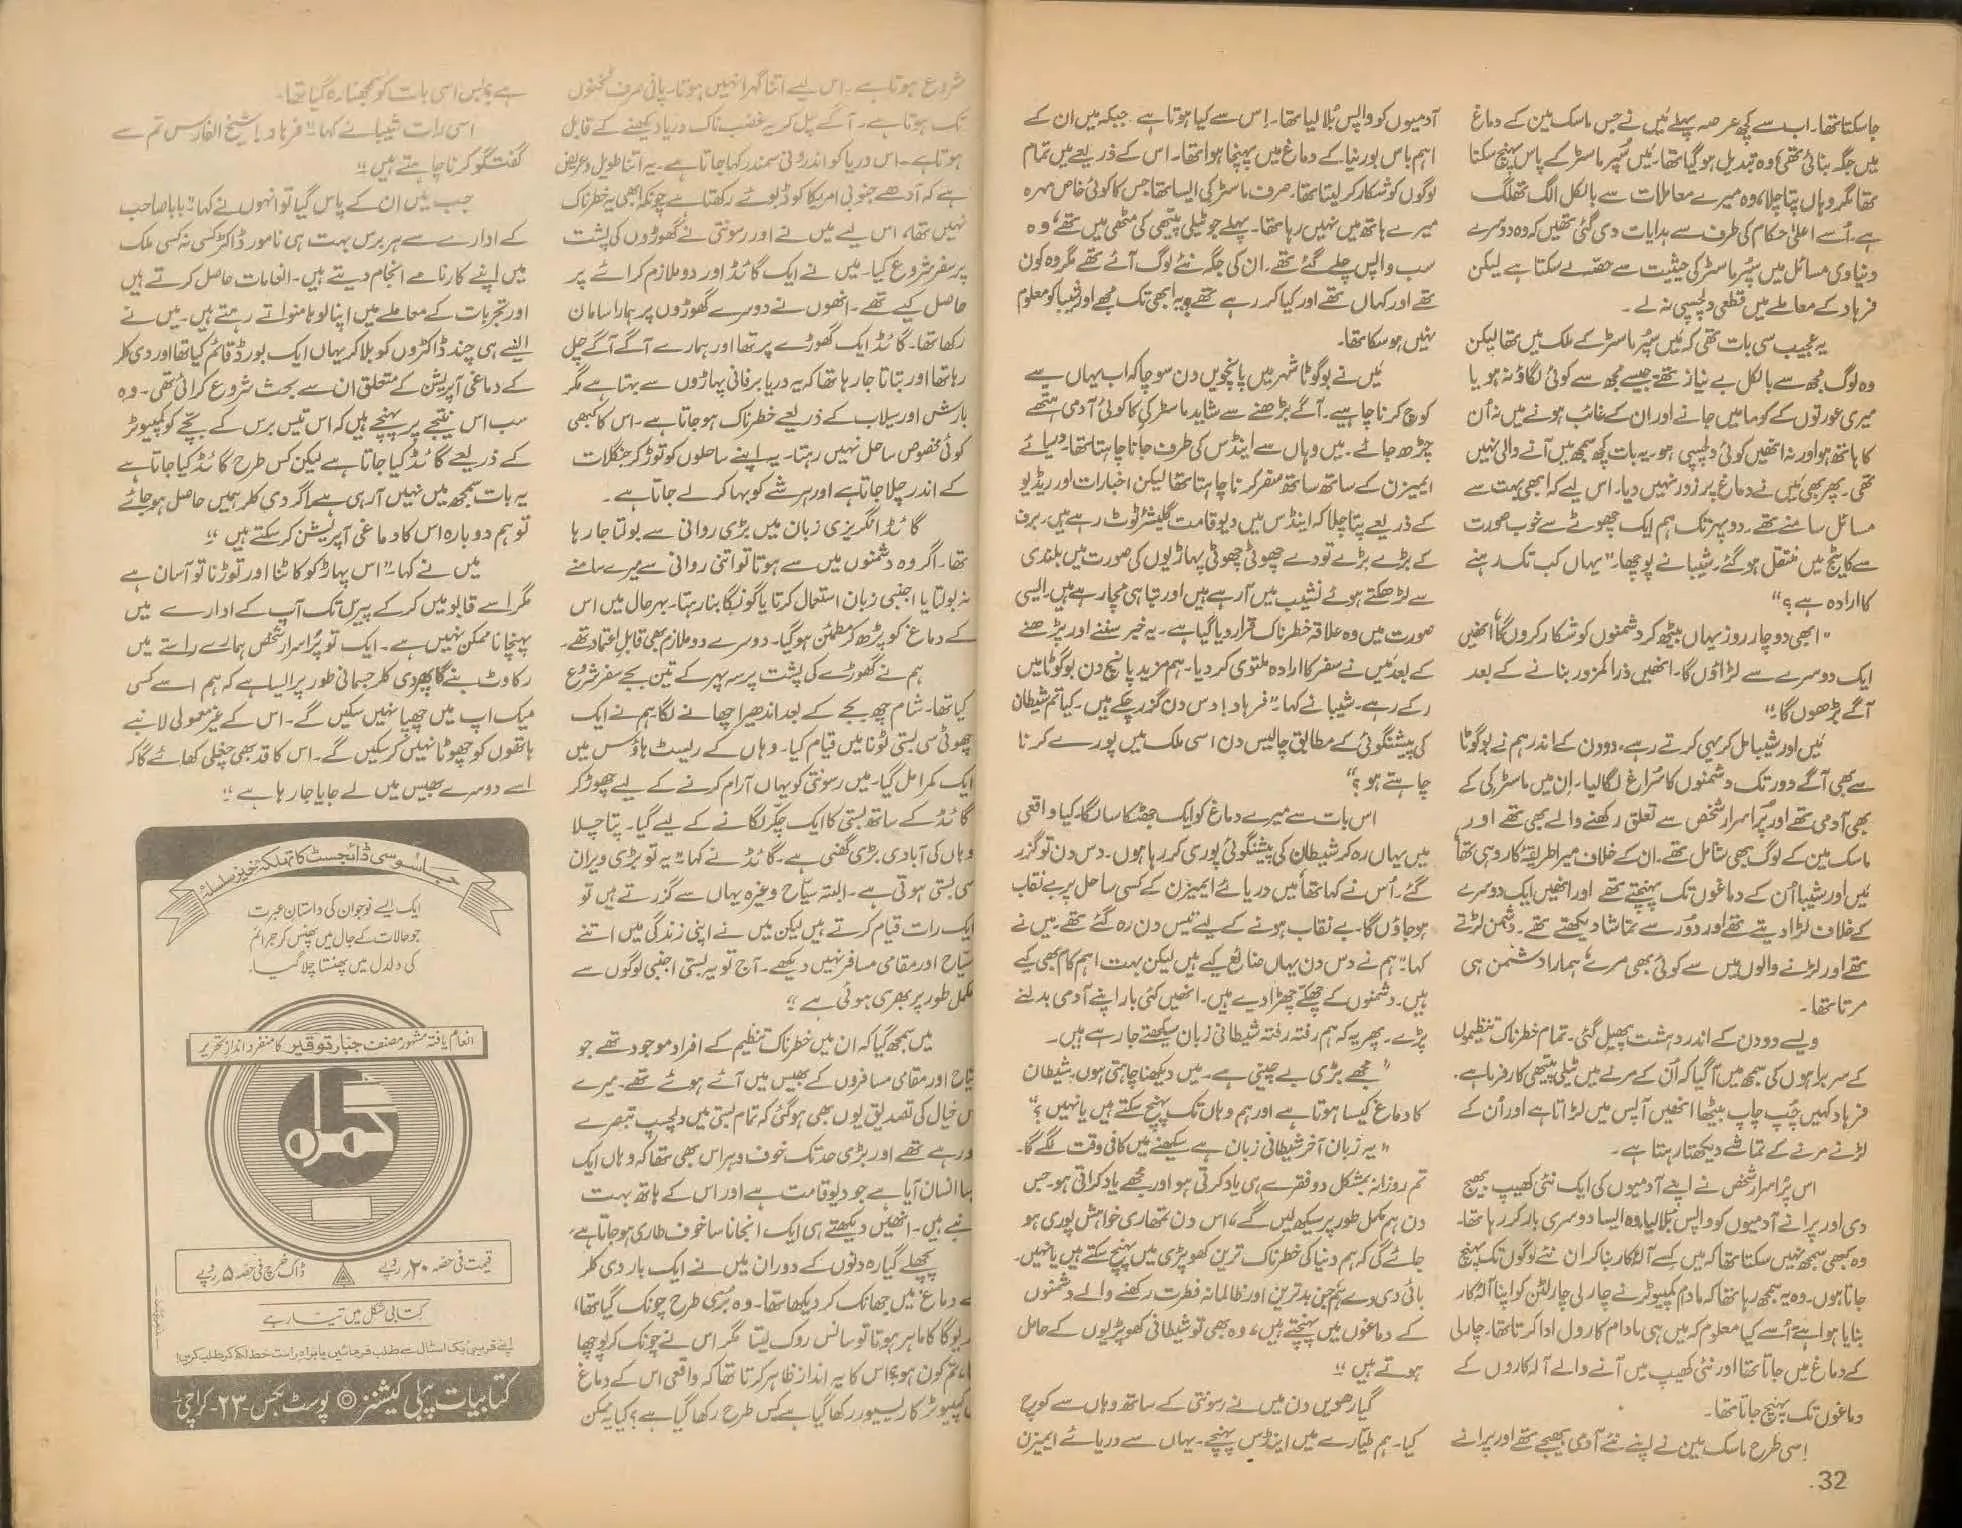 جاسکتا تھا۔ اب سے کچھ عرصہ پہلے میں نے جس ماسک مین کے دماغ
میں جگہ بنائی تھی وہ تبدیل ہو گیا تھا۔ میں سُپر ماسٹر کے پاس پہنچ سکتا
تھا مگر وہاں پتا چلا، وہ میرے معاملات سے بالکل الگ تھلگ
ہے۔ اُسے اعلیٰ حکام کی طرف سے ہدایات دی گئی تھیں کہ وہ دوسرے
دنیاوی مسائل میں سُپر ماسٹر کی حیثیت سے حصہ لے سکتا ہے لیکن
فرہاد کے معاملے میں قطعی دلچسپی نہ لے۔
یہ عجیب سی بات تھی کہ میں سُپر ماسٹر کے ملک میں تھا لیکن
وہ لوگ مجھ سے بالکل بے نیاز تھے جیسے مجھ سے کوئی لگاؤ نہ ہو یا
میری عورتوں کے کوما میں جانے اور ان کے غائب ہونے میں نہ اُن
کا ہاتھ ہو اور نہ انھیں کوئی دلچسپی ہو۔ یہ بات کچھ سمجھ میں آنے والی نہیں
تھی۔ پھر بھی میں نے دماغ پر زور نہیں دیا۔ اس لیے کہ ابھی بہت سے
مسائل سامنے تھے۔ دوپہر تک ہم ایک چھوٹے سے خوب صورت
سے کاٹیج میں منتقل ہو گئے۔ شیبا نے پوچھا۔ "یہاں کب تک رہنے
کا ارادہ ہے؟"
"ابھی دو چار روز یہاں بیٹھ کر دشمنوں کو شکار کروں گا، انھیں
ایک دوسرے سے لڑاؤں گا۔ انھیں ذرا کمزور بنانے کے بعد
آگے بڑھوں گا۔"
میں اور شیبا مل کر یہی کرتے رہے، دو دن کے اندر ہم نے بوگوٹا
سے بھی آگے دور تک دشمنوں کا سُراغ لگا لیا۔ اِن میں ماسٹر کی کے
بھی آدمی تھے اور پُراسرار شخص سے تعلق رکھنے والے بھی تھے اور
ماسک مین کے لوگ بھی شامل تھے۔ ان کے خلاف میرا طریقۂ کار وہی تھا
میں اور شیبا اُن کے دماغوں تک پہنچتے تھے اور انھیں ایک دوسرے
کے خلاف لڑا دیتے تھے اور دُور سے تماشا دیکھتے تھے۔ دشمن لڑتے
تھے اور لڑنے والوں میں سے کوئی بھی مرے، ہمارا دشمن ہی
مرتا تھا۔
ویسے دو دن کے اندر دہشت پھیل گئی۔ تمام خطرناک تنظیموں
کے سربراہوں کی سمجھ میں آ گیا کہ اُن کے مرنے میں ٹیلی پیتھی کارفرما ہے۔
فرہاد کہیں چُپ چاپ بیٹھا انھیں آپس میں لڑاتا ہے اور اُن کے
لڑنے مرنے کے تماشے دیکھتا رہتا ہے۔
اس پُراسرار شخص نے اپنے آدمیوں کی ایک نئی کھیپ بھیج
دی اور پرانے آدمیوں کو واپس بُلا لیا، وہ ایسا دوسری بار کر رہا تھا۔
وہ کبھی سمجھ نہیں سکتا تھا کہ میں کسے آلۂ کار بنا کر ان نئے لوگوں تک پہنچ
جاتا ہوں۔ وہ یہ سمجھ رہا تھا کہ مادام کمپیوٹر نے چارلی چارلٹن کو اپنا آلۂ کار
بنایا ہوا ہے، اُسے کیا معلوم کہ میں ہی مادام کا رول ادا کرتا تھا۔ چارلی
کے دماغ میں جاتا تھا اور نئی کھیپ میں آنے والے آلہ کاروں کے
دماغوں تک پہنچ جاتا تھا۔
اِسی طرح ماسک مین نے اپنے نئے آدمی بھیجے تھے اور پرانے
32
آدمیوں کو واپس بُلا لیا تھا۔ اِس سے کیا ہوتا ہے۔ جبکہ میں ان کے
اہم باس بورنیا کے دماغ میں پہنچا ہوا تھا۔ اس کے ذریعے میں تمام
لوگوں کو شکار کر لیتا تھا۔ صرف ماسٹر کی ایسا تھا جس کا کوئی خاص مہرہ
میرے ہاتھ میں نہیں رہا تھا۔ پہلے جو ٹیلی پیتھی کی مٹھی میں تھے، وہ
سب واپس چلے گئے تھے۔ ان کی جگہ نئے لوگ آئے تھے مگر وہ کون
تھے اور کہاں تھے اور کیا کر رہے تھے۔ یہ ابھی تک مجھے اور شیبا کو معلوم
نہیں ہو سکا تھا۔
میں نے بوگوٹا شہر میں پانچویں دن سوچا کہ اب یہاں سے
کوچ کرنا چاہیے۔ آگے بڑھنے سے شاید ماسٹر کی کا کوئی آدمی ہتھے
چڑھ جائے۔ میں وہاں سے اینڈس کی طرف جانا چاہتا تھا۔ دریائے
ایمیزن کے ساتھ ساتھ سفر کرنا چاہتا تھا لیکن اخبارات اور ریڈیو
کے ذریعے پتا چلا کہ اینڈس میں دیوقامت گلیشئر ٹوٹ رہے ہیں، برف
کے بڑے بڑے تودے چھوٹی چھوٹی پہاڑیوں کی صورت میں بلندی
سے لڑھکتے ہوئے نشیب میں آ رہے ہیں اور تباہی مچا رہے ہیں۔ ایسی
صورت میں وہ علاقہ خطرناک قرار دیا گیا ہے۔ یہ خبر سننے اور پڑھنے
کے بعد میں نے سفر کا ارادہ ملتوی کر دیا۔ ہم مزید پانچ دن بوگوٹا میں
رکے رہے۔ شیبا نے کہا۔ "فرہاد! دس دن گزر چکے ہیں۔ کیا تم شیطان
کی پیشگوئی کے مطابق چالیس دن اسی ملک میں پورے کرنا
چاہتے ہو؟"
اس بات سے میرے دماغ کو ایک جھٹکا سا لگا۔ کیا واقعی
میں یہاں رہ کر شیطان کی پیشگوئی پوری کر رہا ہوں۔ دس دن تو گزر
گئے۔ اُس نے کہا تھا، میں دریائے ایمیزن کے کسی ساحل پر بے نقاب
ہو جاؤں گا۔ بے نقاب ہونے کے لیے تیس دن رہ گئے تھے۔ میں نے
کہا۔ "ہم نے دس دن یہاں ضائع کیے ہیں لیکن بہت اہم کام بھی کیے
ہیں۔ دشمنوں کے چھکے چھڑا دیے ہیں۔ انھیں کئی بار اپنے آدمی بدلنے
پڑے۔ پھر یہ کہ ہم رفتہ رفتہ شیطانی زبان سیکھتے جا رہے ہیں۔
"مجھے بڑی بے چینی ہے۔ میں دیکھنا چاہتی ہوں، شیطان
کا دماغ کیسا ہوتا ہے اور ہم وہاں تک پہنچ سکتے ہیں یا نہیں؟"
"یہ زبان آخر شیطانی زبان ہے سیکھنے میں کافی وقت لگے گا۔
تم روزانہ بمشکل دو فقرے ہی یاد کرتی ہو اور مجھے یاد کراتی ہو۔ جس
دن ہم مکمل طور پر سیکھ لیں گے، اس دن تمھاری خواہش پوری ہو
جائے گی کہ ہم دنیا کی خطرناک ترین کھوپڑی میں پہنچ سکتے ہیں یا نہیں۔
بائی دی وے ہم جن بدترین اور ظالمانہ فطرت رکھنے والے دشمنوں
کے دماغوں میں پہنچتے ہیں، وہ بھی تو شیطانی کھوپڑیوں کے حامل
ہوتے ہیں۔"
گیارھویں دن میں نے رسونتی کے ساتھ وہاں سے کوچ
کیا۔ ہم طیارے میں اینڈس پہنچے۔ یہاں سے دریائے ایمیزن
شروع ہوتا ہے۔ اس لیے اتنا گہرا نہیں ہوتا۔ پانی صرف ٹخنوں
تک ہوتا ہے۔ آگے چل کر یہ غضب ناک دریا دیکھنے کے قابل
ہوتا ہے۔ اس دریا کو اندرونی سمندر کہا جاتا ہے۔ یہ اتنا طویل و عریض
ہے کہ آدھے جنوبی امریکا کو ڈبوئے رکھتا ہے چونکہ ابھی یہ خطرناک
نہیں تھا، اس لیے میں نے اور رسونتی نے گھوڑوں کی پشت
پر سفر شروع کیا۔ میں نے ایک گائڈ اور دو ملازم کرائے پر
حاصل کیے تھے۔ انھوں نے دوسرے گھوڑوں پر ہمارا سامان
رکھا تھا۔ گائڈ ایک گھوڑے پر تھا اور ہمارے آگے آگے چل
رہا تھا اور بتاتا جا رہا تھا کہ یہ دریا برفانی پہاڑوں سے بہتا ہے مگر
بارش اور سیلاب کے ذریعے خطرناک ہو جاتا ہے۔ اس کا کبھی
کوئی مخصوص ساحل نہیں رہتا۔ یہ اپنے ساحلوں کو توڑ کر جنگلات
کے اندر چلا جاتا ہے اور ہر شے کو بہا کر لے جاتا ہے۔
گائڈ انگریزی زبان میں بڑی روانی سے بولتا جا رہا
تھا۔ اگر وہ دشمنوں میں سے ہوتا تو اتنی روانی سے میرے سامنے
نہ بولتا یا اجنبی زبان استعمال کرتا یا گونگا بنا رہتا۔ بہرحال میں اس
کے دماغ کو پڑھ کر مطمئن ہو گیا۔ دوسرے دو ملازم بھی قابلِ اعتماد تھے۔
ہم نے گھوڑے کی پشت پر سہ پہر کے تین بجے سفر شروع
کیا تھا۔ شام چھ بجے کے بعد اندھیرا چھانے لگا۔ ہم نے ایک
چھوٹی سی بستی لونا میں قیام کیا۔ وہاں کے ریسٹ ہاؤس میں
ایک کمرا مل گیا۔ میں رسونتی کو یہاں آرام کرنے کے لیے چھوڑ کر
گائڈ کے ساتھ بستی کا ایک چکر لگانے کے لیے گیا۔ پتا چلا
وہاں کی آبادی بڑی گھنی ہے۔ گائڈ نے کہا۔ "یہ تو بڑی ویران
سی بستی ہوتی ہے۔ البتہ سیّاح وغیرہ یہاں سے گزرتے ہیں تو
ایک رات قیام کرتے ہیں لیکن میں نے اپنی زندگی میں اتنے
سیّاح اور مقامی مسافر نہیں دیکھے۔ آج تو یہ بستی اجنبی لوگوں سے
مکمل طور پر بھری ہوئی ہے۔"
میں سمجھ گیا کہ ان میں خطرناک تنظیم کے افراد موجود تھے جو
سیاح اور مقامی مسافروں کے بھیس میں آئے ہوئے تھے۔ میرے
اس خیال کی تصدیق یوں بھی ہو گئی کہ تمام بستی میں دلچسپ تبصرے
ہو رہے تھے اور بڑی حد تک خوف و ہراس بھی تھا کہ وہاں ایک
انسان آیا ہے جو دیوقامت ہے اور اس کے ہاتھ بہت
لمبے ہیں۔ انھیں دیکھتے ہی ایک انجانا سا خوف طاری ہو جاتا ہے۔
پچھلے گیارہ دنوں کے دوران میں نے ایک بار دی کلر
کے دماغ میں جھانک کر دیکھا تھا۔ وہ بُری طرح چونک گیا تھا،
یوگا کا ماہر ہوتا تو سانس روک لیتا مگر اس نے چونک کر پوچھا
تم کون ہو؟ اس کا یہ انداز ظاہر کرتا تھا کہ واقعی اس کے دماغ
کمپیوٹر کا ریسیور رکھا گیا ہے کس طرح رکھا گیا ہے؟ کیا یہ ممکن
ہے؟ بس اسی بات کو سمجھنا رہ گیا تھا۔
اسی رات شیبا نے کہا۔ "فرہاد! شیخ الفارس تم سے
گفتگو کرنا چاہتے ہیں۔"
جب میں ان کے پاس گیا تو انھوں نے کہا۔ "بابا صاحب
کے ادارے سے ہر برس بہت ہی نامور ڈاکٹر کسی نہ کسی ملک
میں اپنے کارنامے انجام دیتے ہیں۔ انعامات حاصل کرتے ہیں
اور تجربات کے معاملے میں اپنا لوہا منواتے رہتے ہیں۔ میں نے
ایسے ہی چند ڈاکٹروں کو بلا کر یہاں ایک بورڈ قائم کیا تھا اور دی کلر
کے دماغی آپریشن کے متعلق ان سے بحث شروع کرائی تھی۔ وہ
سب اس نتیجے پر پہنچے ہیں کہ اس تیس برس کے بچے کو کمپیوٹر
کے ذریعے گائڈ کیا جاتا ہے لیکن کس طرح گائڈ کیا جاتا ہے
یہ بات سمجھ میں نہیں آ رہی ہے اگر دی کلر ہمیں حاصل ہو جائے
تو ہم دوبارہ اس کا دماغی آپریشن کر سکتے ہیں۔"
میں نے کہا۔ "اس پہاڑ کو کاٹنا اور توڑنا تو آسان ہے
مگر اسے قابو میں کر کے پیرس تک آپ کے ادارے میں
پہنچانا ممکن نہیں ہے۔ ایک تو پُراسرار شخص ہمارے راستے میں
رکاوٹ بنے گا پھر دی کلر جسمانی طور پر ایسا ہے کہ ہم اسے کسی
میک اپ میں چھپا نہیں سکیں گے۔ اس کے غیر معمولی لانبے
ہاتھوں کو چھوٹا نہیں کر سکیں گے۔ اس کا قد بھی چغلی کھائے گا کہ
اسے دوسرے بھیس میں لے جایا جا رہا ہے۔"
جاسوسی ڈائجسٹ کا تہلکہ خیز سلسلہ
ایک ایسے نوجوان کی داستانِ عبرت
جو حالات کے جال میں پھنس کر جرائم
کی دلدل میں پھنستا چلا گیا۔
انعام یافتہ مشہور مصنف جبار توقیر کا منفرد اندازِ تحریر
گمراہ
قیمت فی حصہ ۲۰ روپے
ڈاک خرچ فی حصہ ۵ روپے
کتابی شکل میں تیار ہے
اپنے قریبی بک اسٹال سے طلب فرمائیں یا براہِ راست خط لکھ کر طلب کریں!
کتابیات پبلی کیشنز © پوسٹ بکس ۲۳ کراچی ۱